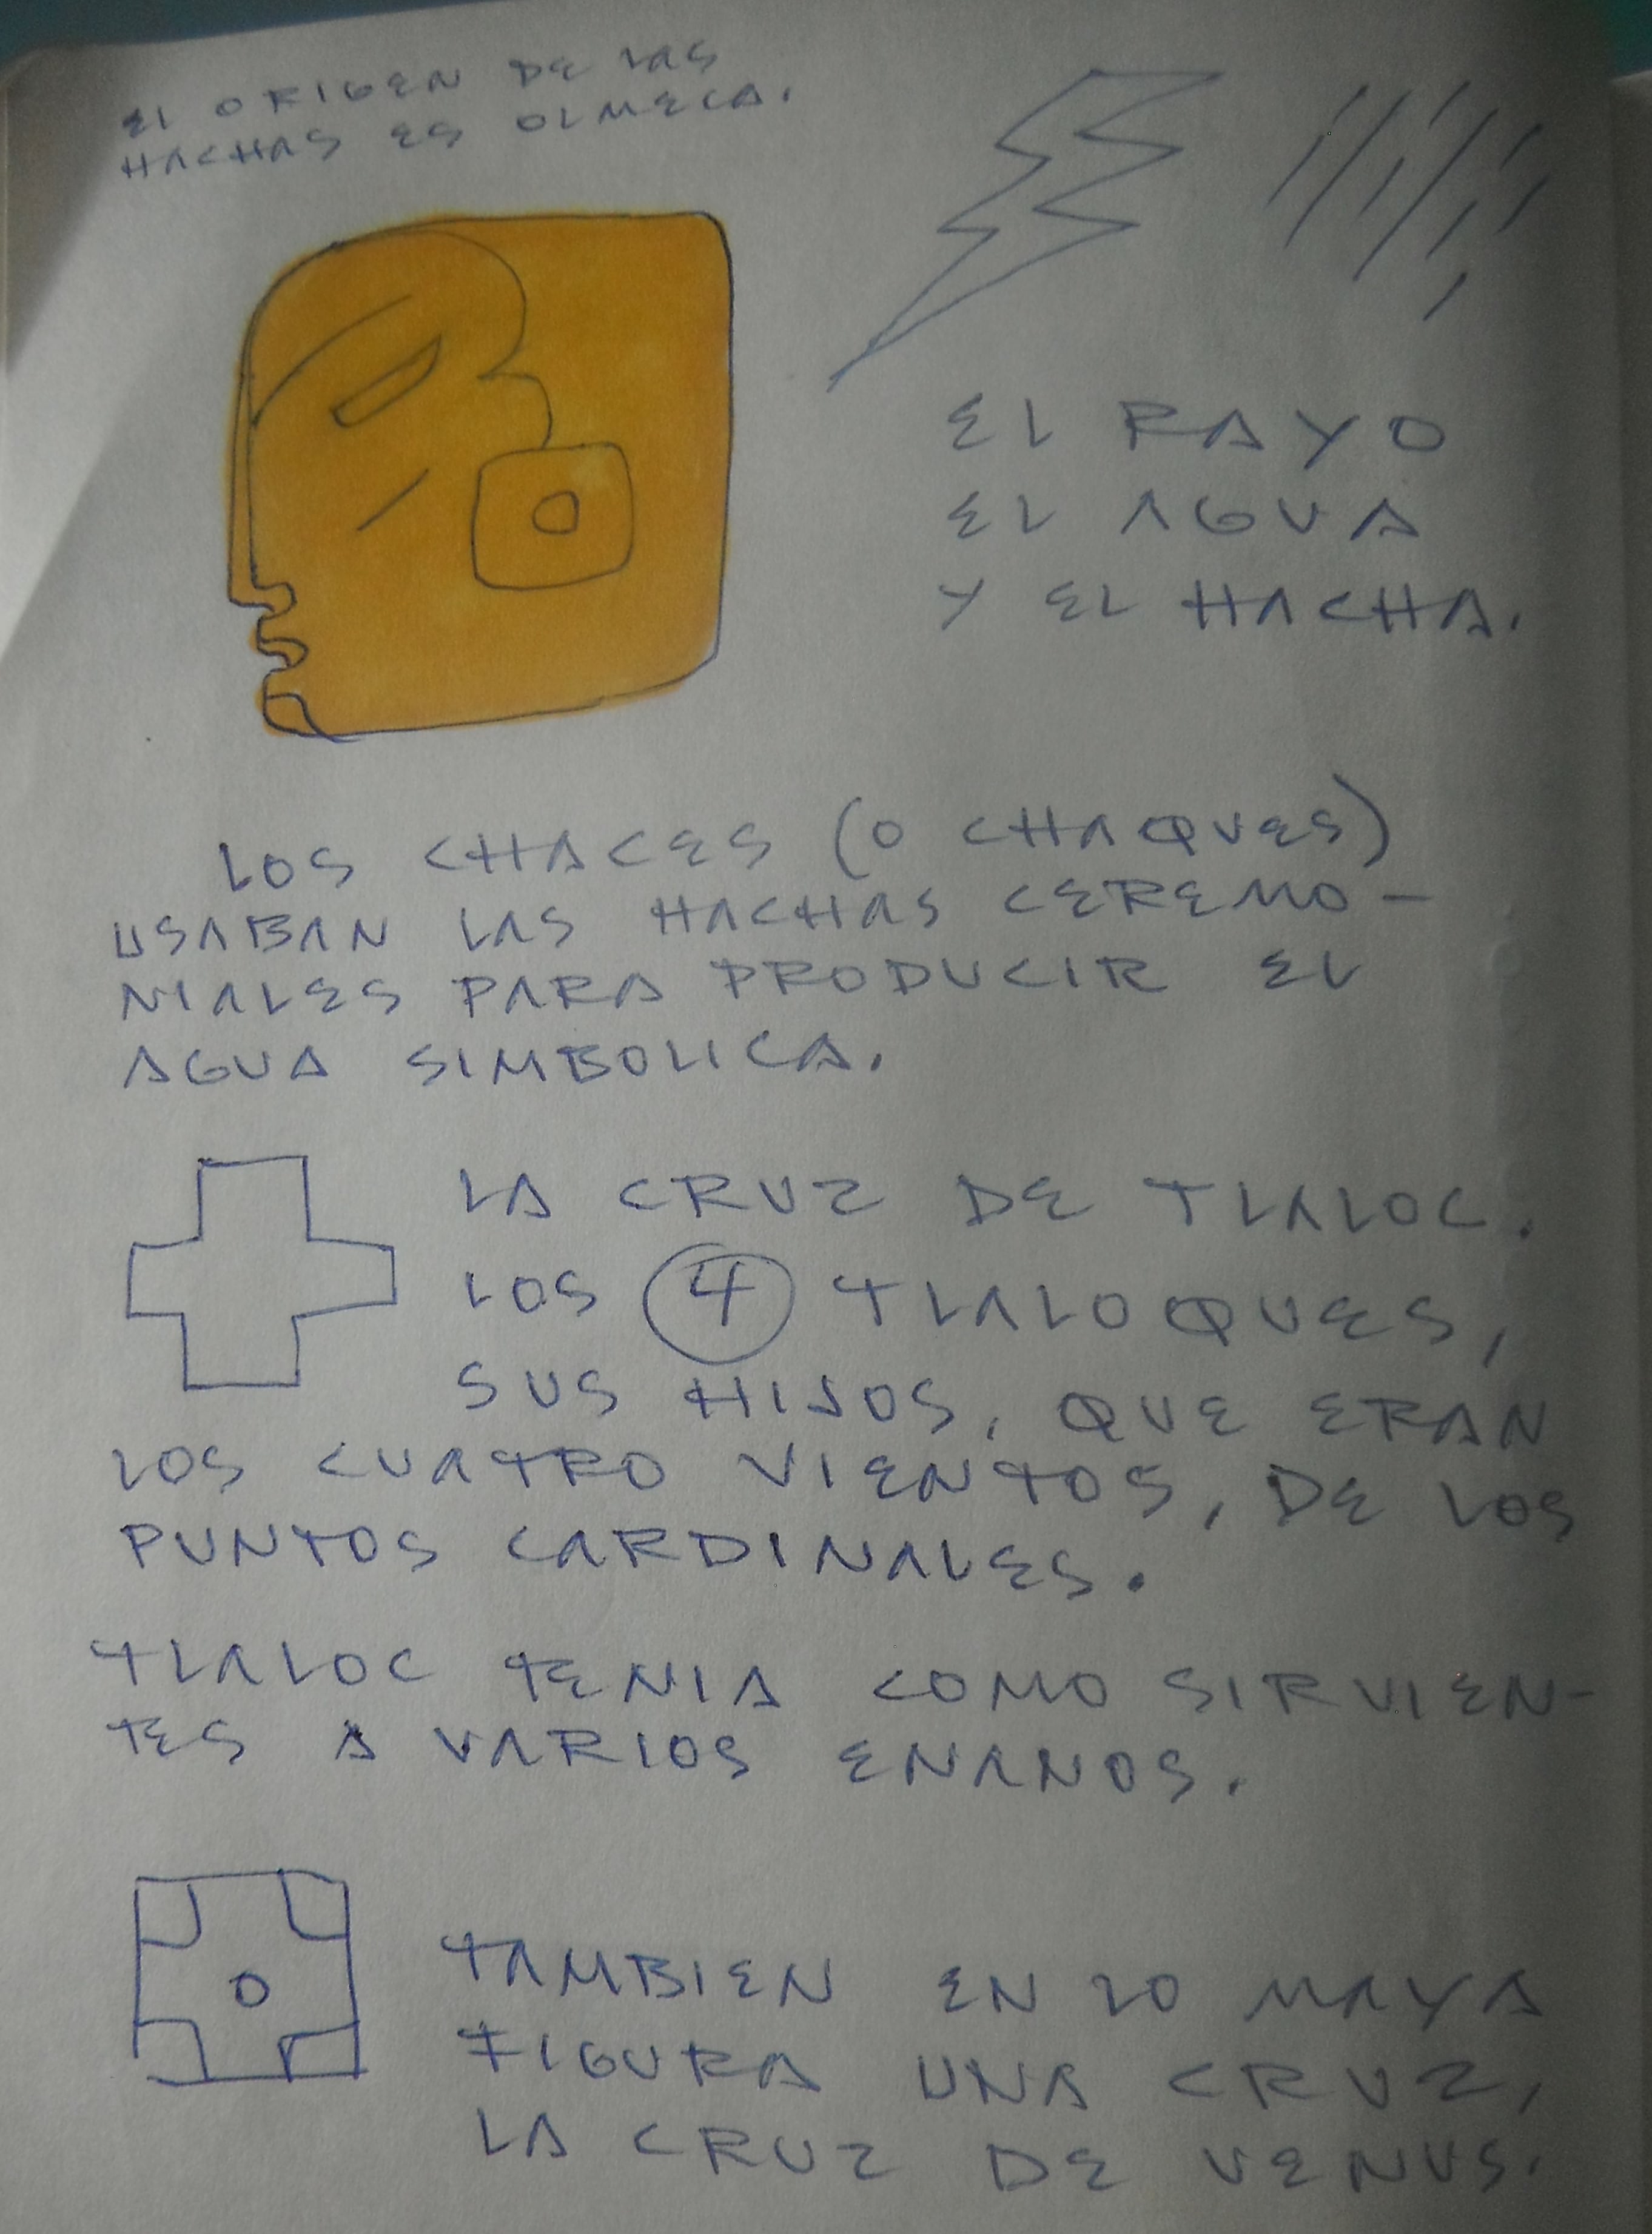 EL ORIGEN DE LAS
HACHAS ES OLMECA.
EL RAYO
EL AGUA
Y EL HACHA.
LOS CHACES (O CHAQUES)
USABAN LAS HACHAS CEREMO-
NIALES PARA PRODUCIR EL
AGUA SIMBOLICA.
LA CRUZ DE TLALOC.
LOS 4 TLALOQUES,
SUS HIJOS, QUE ERAN
LOS CUATRO VIENTOS, DE LOS
PUNTOS CARDINALES.
TLALOC TENIA COMO SIRVIEN-
TES A VARIOS ENANOS.
TAMBIEN EN LO MAYA
FIGURA UNA CRUZ,
LA CRUZ DE VENUS.